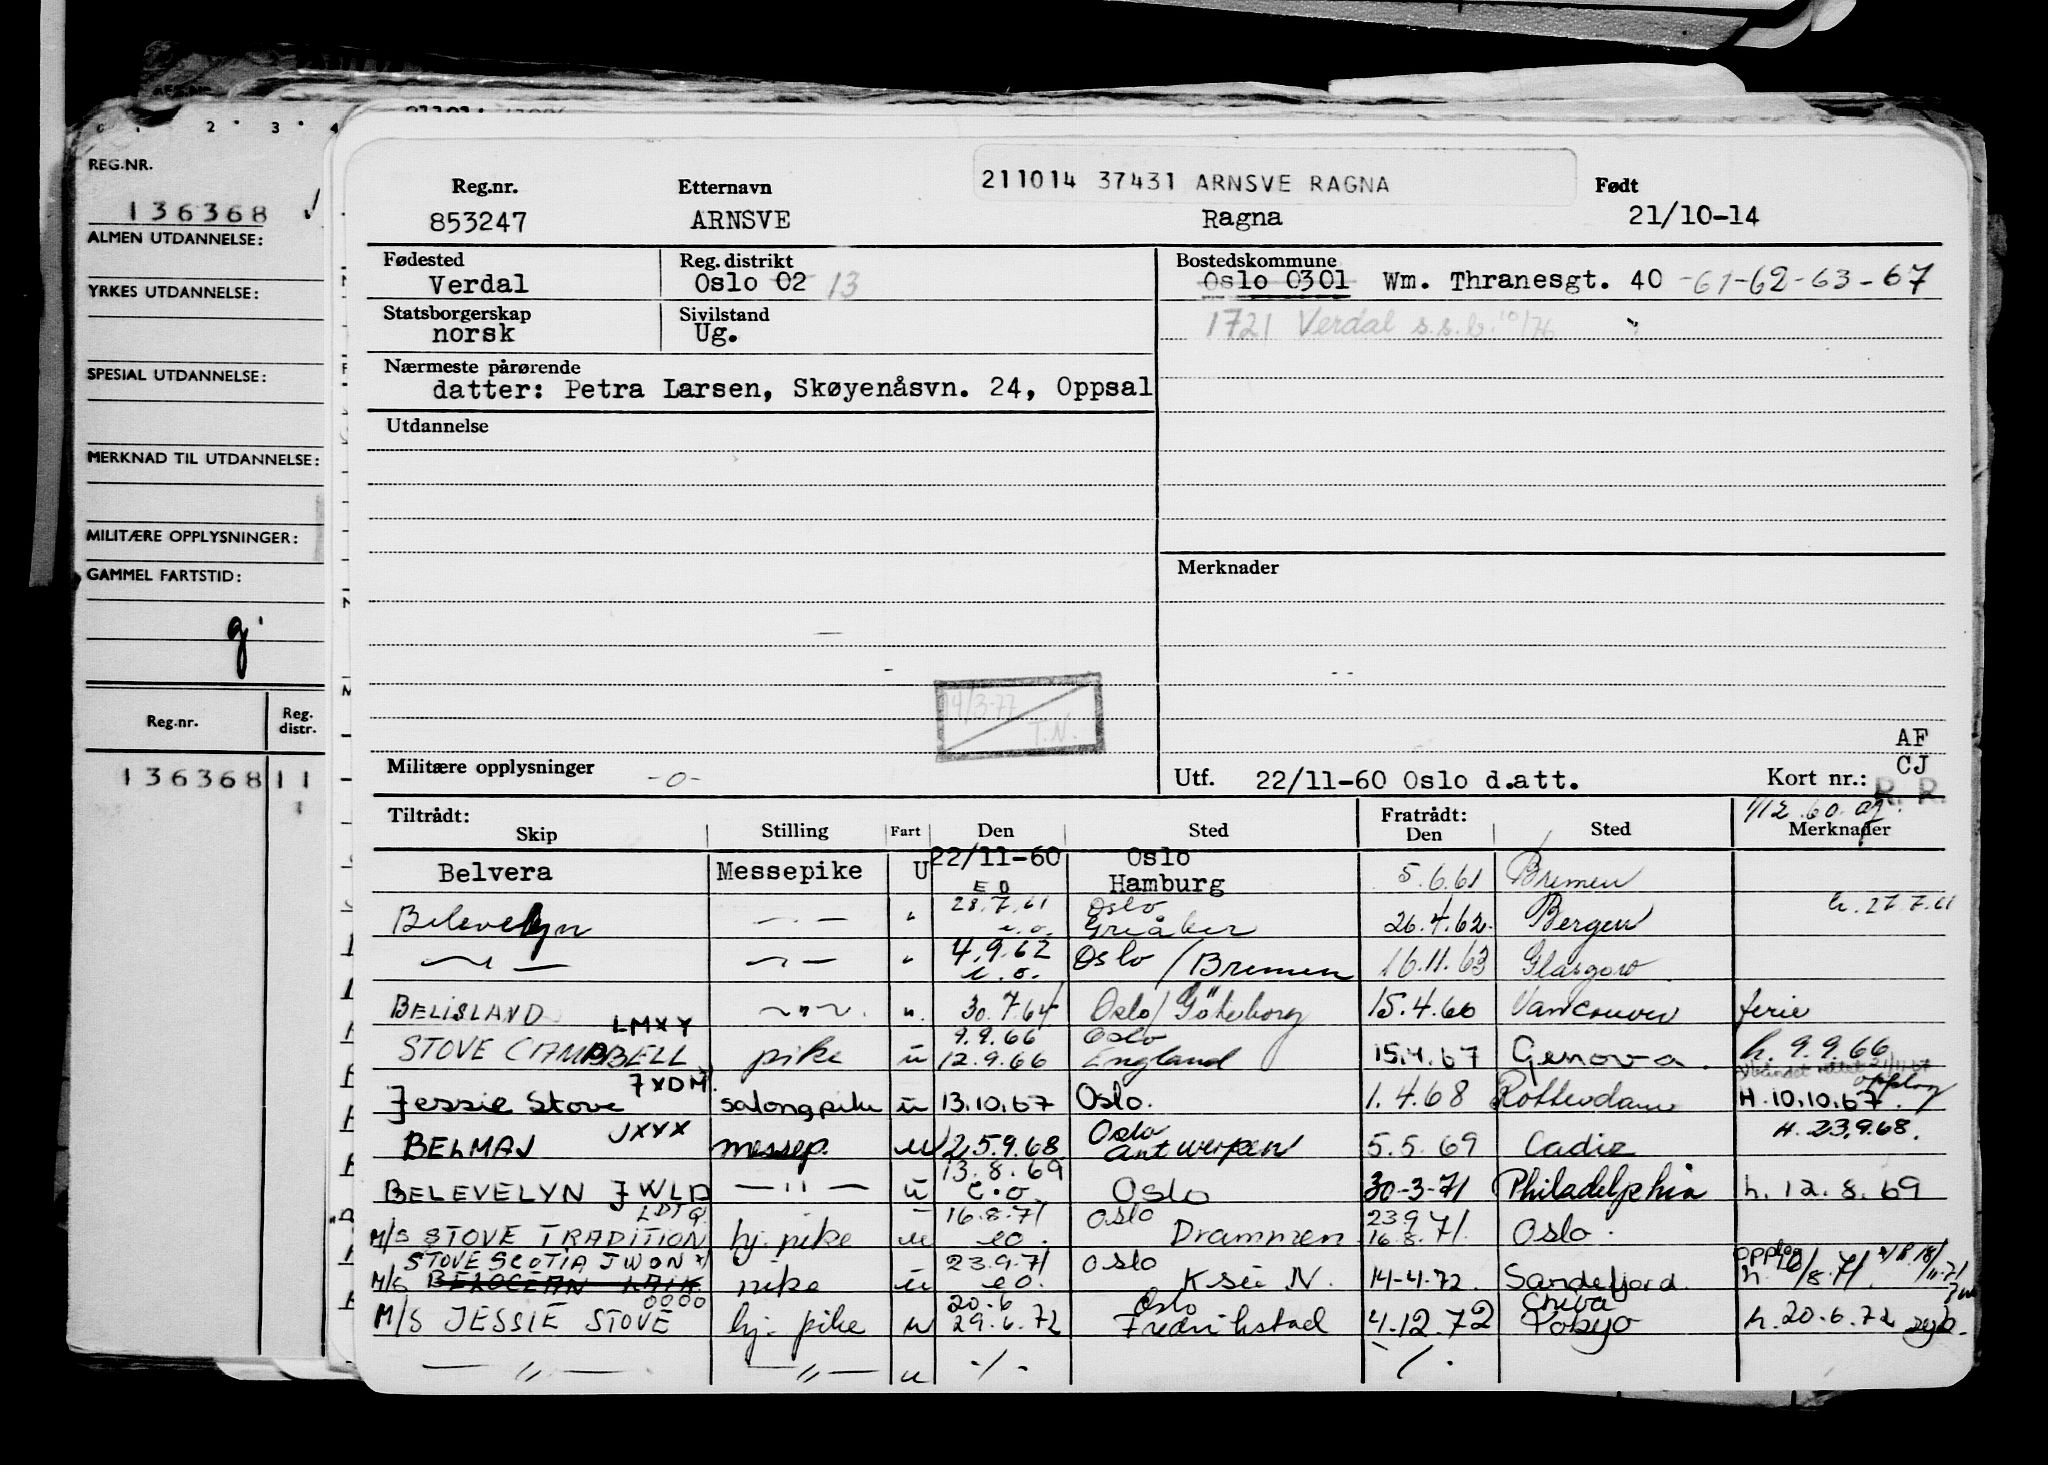 0 1 2 3 4
REG.NR.
136368
ALMEN UTDANNELSE:
YRKES UTDANNELSE:
SPESIAL UTDANNELSE:
MERKNAD TIL UTDANNELSE:
MILITÆRE OPPLYSNINGER:
GAMMEL FARTSTID:
Reg.nr. Reg. distr.
136368 11
211014 37431 ARNSVE RAGNA
Reg.nr. Etternavn Født
853247 ARNSVE Ragna 21/10-14
Fødested Reg. distrikt Bostedskommune
Verdal Oslo 02 13 Oslo 0301 Wm. Thranesgt. 40 -61-62-63-67
Statsborgerskap Sivilstand
norsk Ug. 1721 Verdal s.s.b. 10/76
Nærmeste pårørende
datter: Petra Larsen, Skøyenåsvn. 24, Oppsal
Utdannelse
Merknader
14/3-77
T.N.
AF
CJ
Militære opplysninger -o- Utf. 22/11-60 Oslo d.att. Kort nr.: R. R.
Tiltrådt: Fratrådt:
Skip Stilling Fart Den Sted Den Sted Merknader
Belvera Messepike U 22/11-60 Oslo
E O Hamburg 5.6.61 Bremen
Belevelyn — " — " 28.7.61 Oslo
e.o. Greåker 26.4.62 Bergen h. 27.7.61
— " — — " — " 4.9.62 e.o. Oslo / Bremen 16.11.63 Glasgow
BELISLAND — " — " 30.7.64 Oslo/Göteborg 15.4.66 Vancouver ferie
LMXY 9.9.66 Oslo
STOVE CAMPBELL pike u 12.9.66 England 15.4.67 Genova h. 9.9.66
JXDM opplag
Jessie Stove salongpike u 13.10.67 Oslo. 1.4.68 Rotterdam H. 10.10.67.
JXYX Oslo H. 23.9.68.
BELMAJ messep. u 25.9.68 Antwerpen 5.5.69 Cadiz
13.8.69
BELEVELYN JWLD — " — u e.o. Oslo 30-3-71 Philadelphia h. 12.8.69
LDTQ 16.8.71 Oslo 23.9.71
M/S STOVE TRADITION hj. pike u eo. Drammen 16.8.71. Oslo.
STOVE SCOTIA JWON 23.9.71 Oslo opplag
M/S BELOCEAN pike u eo. 14-4-72 Sandefjord
20.6 Oslo Chiba
M/S JESSIE STOVE hj. pike u 29.6.72 Fredrikstad 4.12.72 Tokyo h. 20-6.72
— " — — " — u -/- -/-